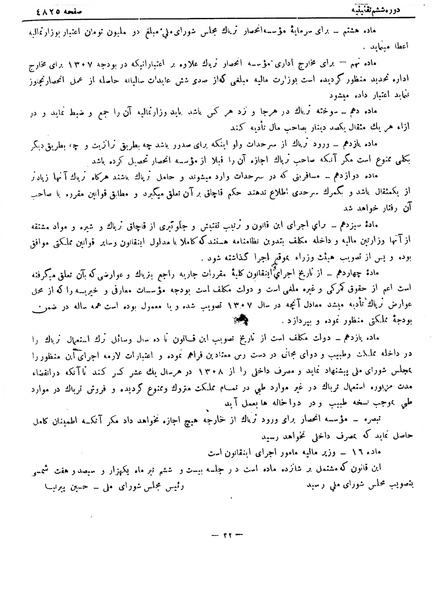 دوره ششم تقنینیه
صفحه ۴۸۲۵
ماده هشتم – برای سرمایهٔ مؤسسه انحصار تریاک مجلس شورای ملی مبلغ دو ملیون تومان اعتبار بوزارتمالیه
اعطا مینماید .
ماده نهم – برای مخارج اداری مؤسسه انحصار تریاک علاوه بر اعتباراتیکه در بودجه ۱۳۰۷ برای مخارج
اداره تحدید منظور گردیده است بوزارت مالیه مبلغی که از صدی شش عایدات سالیانه حاصله از عمل انحصار تجاوز
نماید اعتبار داده میشود
ماده دهم – سوخته تریاک در هرجا و نزد هر کس باشد باید وزارتمالیه آن را جمع و ضبط نماید و در
ازاء هر یک مثقال یکصد دینار بصاحب مال تأدیه کند
ماده یازدهم – ورود تریاک از سرحدات ولو اینکه برای صدور باشد چه بطریق ترانزیت و چه بطریق دیگر
بکلی ممنوع است مگر آنکه صاحب تریاک اجازه آن را قبلا از مؤسسه انحصار تحصیل کرده باشد
ماده دوازدهم – مسافرینی که در سرحدات وارد میشوند و حامل تریاک باشند هرگاه تریاک آنها زیادتر
از یکمثقال باشد و بگمرک سرحدی اطلاع ندهند حکم قاچاق بر آن تعلق میگیرد و مطابق قوانین مقرره با صاحب
آن رفتار خواهد شد
ماده سیزدهم – برای اجرای این قانون و ترتیب تفتیش و جلوگیری از قاچاق تریاک و شیره و مواد مشتقه
از آنها وزارتین مالیه و داخله مکلف بتدوین نظامنامه هستند که کاملا با مدلول اینقانون وسایر قوانین مملکتی موافق
بوده و پس از تصویب هیئت وزراء بموقع اجرا گذاشته شود .
مادۀ چهاردهم – از تاریخ اجرای اینقانون کلیهٔ مقررات جاریه راجع بتریاک و عوارضی که بآن تعلق میگرفته
است اعم از حقوق گمرکی و غیره ملغی است و دولت مکلف است بودجه مؤسسات معارف و خیریه را که از محل
عوارض تریاک تأدیه میشد معادل آنچه در سال ۱۳۰۷ تصویب شده و یا معمول بوده است همه ساله در ضمن
بودجهٔ مملکتی منظور نموده و بپردازد .
ماده پازدهم – دولت مکلف است از تاریخ تصویب این قانون تا ده سال وسائل ترک استعمال تریاک را
در داخله مملکت وطبیب و دوای مجانی در دست رس معتادین فراهم نموده و اعتبارات لازمه اجرای این منظور را
بمجلس شورای ملی پیشنهاد نماید و مصرف داخلی را از ۱۳۰۸ در هرسال یک عشر کسر کند تا آنکه درانقضاء
مدت مزبوره استعمال تریاک در غیر موارد طبی در تمام مملکت متروک وممنوع گردیده و فروش تریاک در موارد
طبی بموجب نسخه طبیب و در دواخانه ها بعمل آید
تبصره – مؤسسه انحصار برای ورود تریاک از خارجه هیچ اجازه نخواهد داد مگر آنکه اطمینان کامل
حاصل نماید که بمصرف داخلی نخواهد رسید
ماده ۱۶ – وزیر مالیه مامور اجرای اینقانون است
این قانون که مشتمل بر شانزده ماده است در جلسه بیست و ششم تیر ماه یکهزار و سیصد و هفت شمسی
بتصویب مجلس شورای ملی رسید
رئیس مجلس شورای ملی – حسین پیرنیا
– ۲۲ –